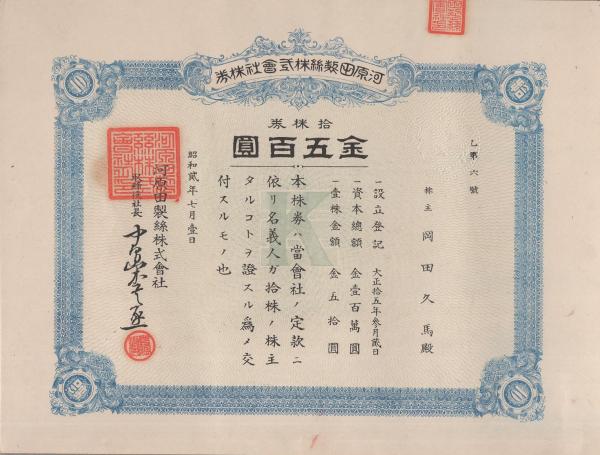 河原田製絲株式會社株券
拾株券
金五百圓
乙第六號
株主 岡田久馬殿
一設立登記 大正拾五年參月貳日
一資本總額 金壹百萬圓
一壹株金額 金五拾圓
本株券ハ當會社ノ定款ニ
依リ名義人ガ拾株ノ株主
タルコトヲ證スル爲メ交
付スルモノ也
昭和貳年七月壹日
河原田製絲株式會社
取締役社長
K